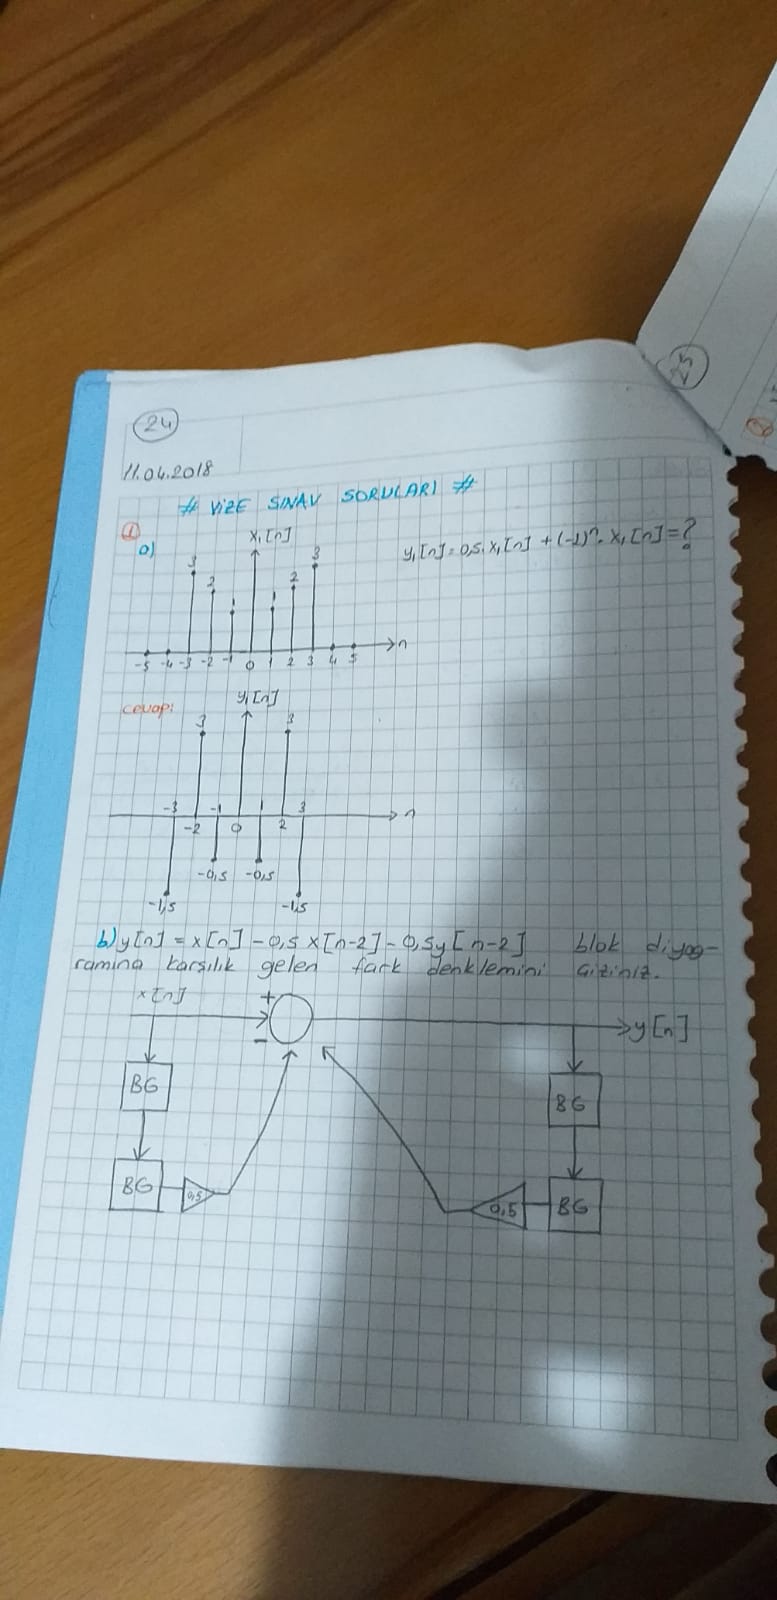 24
11.04.2018
# VİZE SINAV SORULARI #
1
a)
x₁[n]
y₁[n] = 0,5.x₁[n] + (-1)ⁿ. x₁[n] = ?
3 2 1 1 2 3
-5 -4 -3 -2 -1 0 1 2 3 4 5
n
cevap:
y₁[n]
3 3
-3 -1 1 3
n
-2 0 2
-0,5 -0,5
-1,5 -1,5
b) y[n] = x[n] - 0,5 x[n-2] - 0,5y[n-2] blok diyag-
ramına karşılık gelen fark denklemini çiziniz.
x[n]
+
-
y[n]
BG
BG
BG
0,5
0,5
BG
25